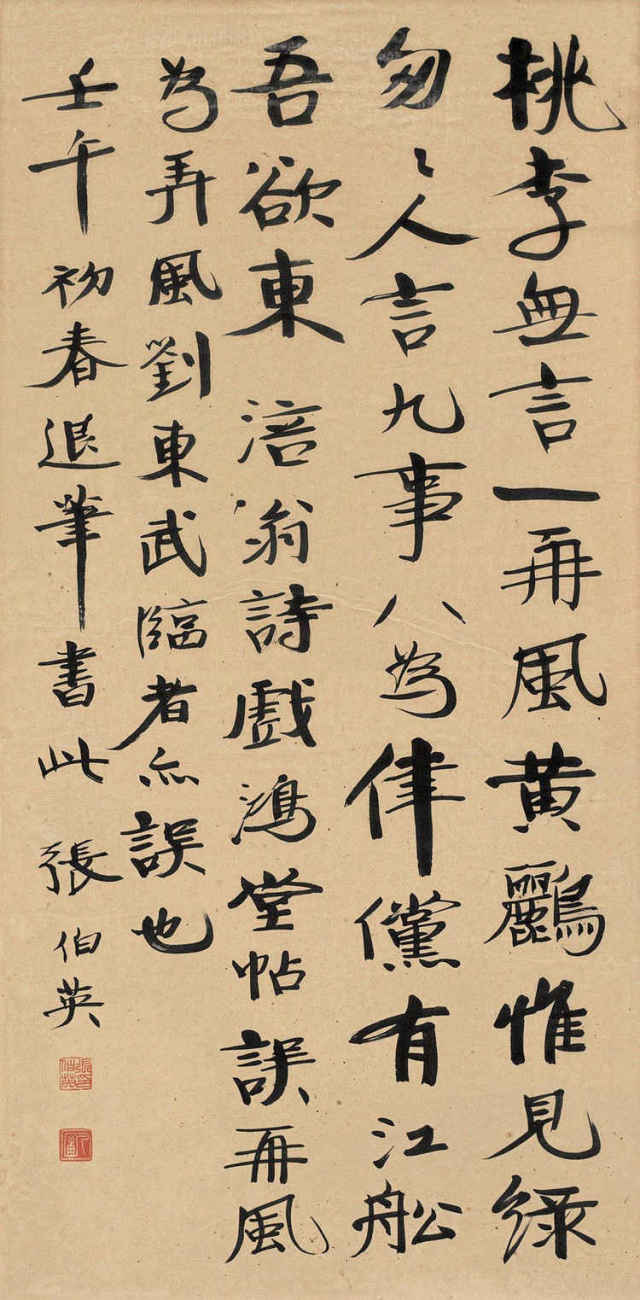 桃李無言一再風黄鸝惟見緑
匆〻人言九事八為律儻有江舩
吾欲東 涪翁詩戲鴻堂帖誤再風
為弄風劉東武臨者亦誤也
壬午初春退筆書此 張伯英